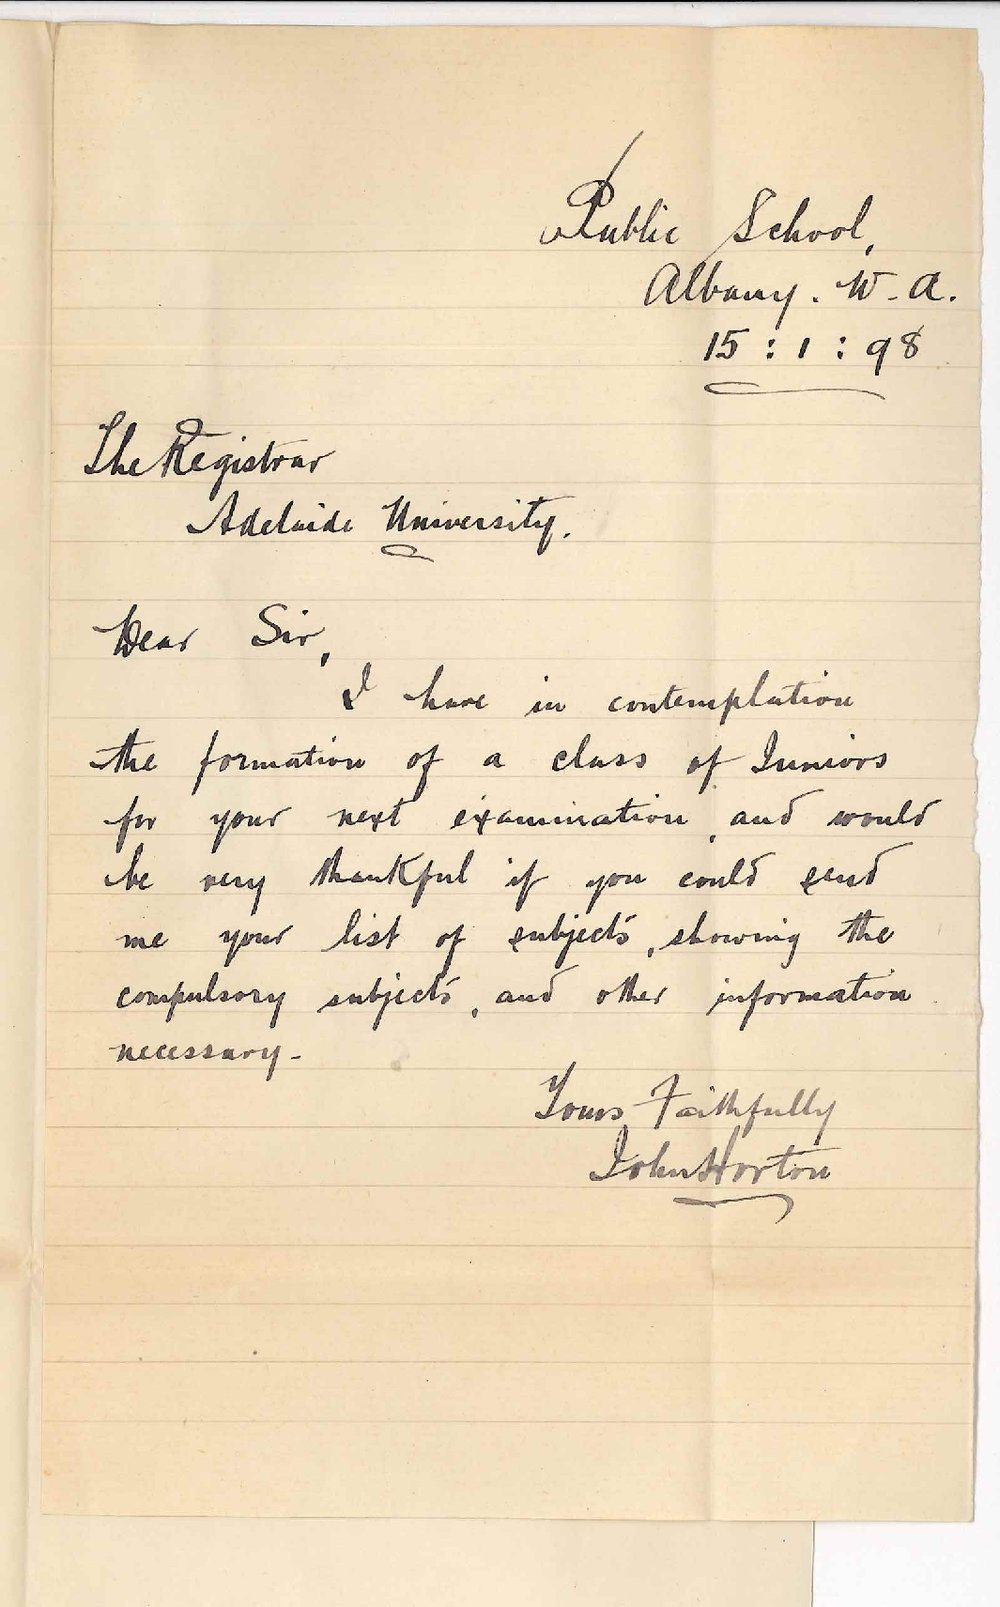 Public School,
Albany. W. A.
15 : 1 : 98
The Registrar
Adelaide University.
Dear Sir,
I have in contemplation
the formation of a class of Juniors
for your next examination, and would
be very thankful if you could send
me your list of subjects, showing the
compulsory subjects, and other information
necessary-
Yours Faithfully
John Horton